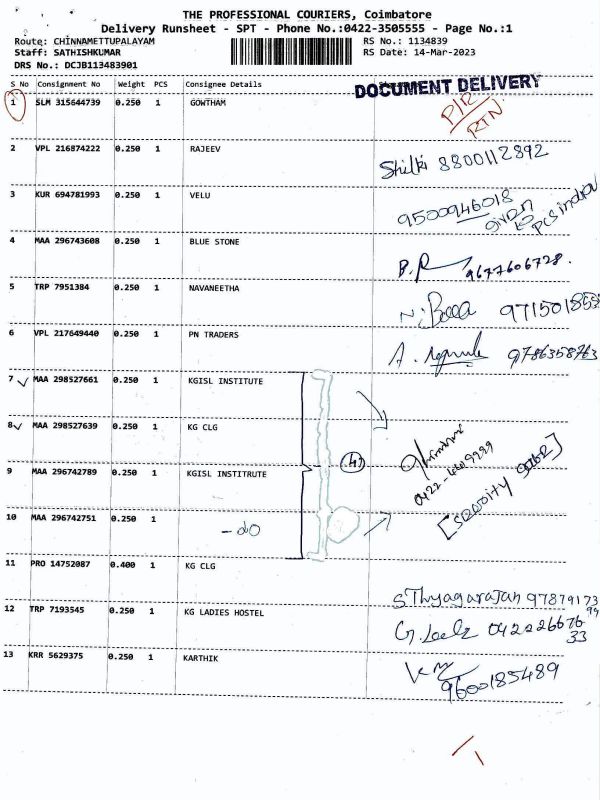 THE PROFESSIONAL COURIERS, Coimbatore
Delivery Runsheet - SPT - Phone No.:0422-3505555 - Page No.:1
Route: CHINNAMETTUPALAYAM RS No.: 1134839
Staff: SATHISHKUMAR RS Date: 14-Mar-2023
DRS No.: DCJB113483901
S No Consignment No Weight PCS Consignee Details
DOCUMENT DELIVERY
1 SLM 315644739 0.250 1 GOWTHAM
RTN
2 VPL 216874222 0.250 1 RAJEEV
Shilki 8800112892
3 KUR 694781993 0.250 1 VELU
9500946018
given to
4 MAA 296743608 0.250 1 BLUE STONE
9677606728.
5 TRP 7951384 0.250 1 NAVANEETHA
6 VPL 217649440 0.250 1 PN TRADERS
A. 9786358763
7 MAA 298527661 0.250 1 KGISL INSTITUTE
8 MAA 298527639 0.250 1 KG CLG
(4)
9 MAA 296742789 0.250 1 KGISL INSTITRUTE
10 MAA 296742751 0.250 1 - do
11 PRO 14752087 0.400 1 KG CLG
S Thyagarajan 97879173
99
12 TRP 7193545 0.250 1 KG LADIES HOSTEL
G. 042226676
33
13 KRR 5629375 0.250 1 KARTHIK
9600185489